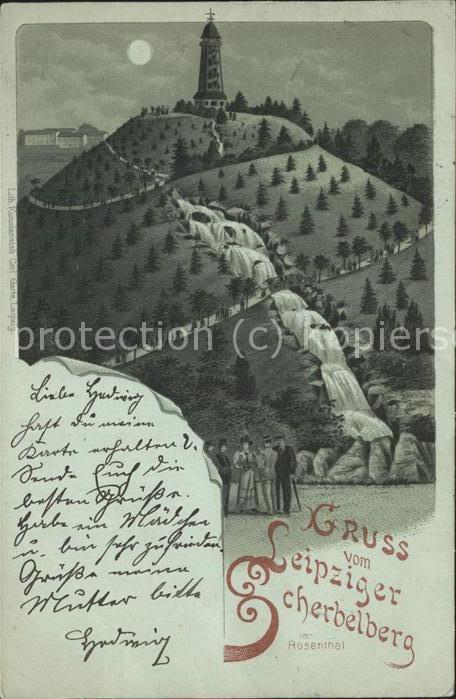 Lith. Kunstanstalt Carl Garte, Leipzig
protection (c) copiersc
Liebe Hedwig
hast du meine
Karte erhalten?
Sende Euch die
besten Grüße.
Habe ein Mädchen
u. bin sehr zufrieden
Grüße meine
Mutter bitte
Hedwig
GRUSS
vom
Leipziger
Scherbelberg
im
Rosenthal